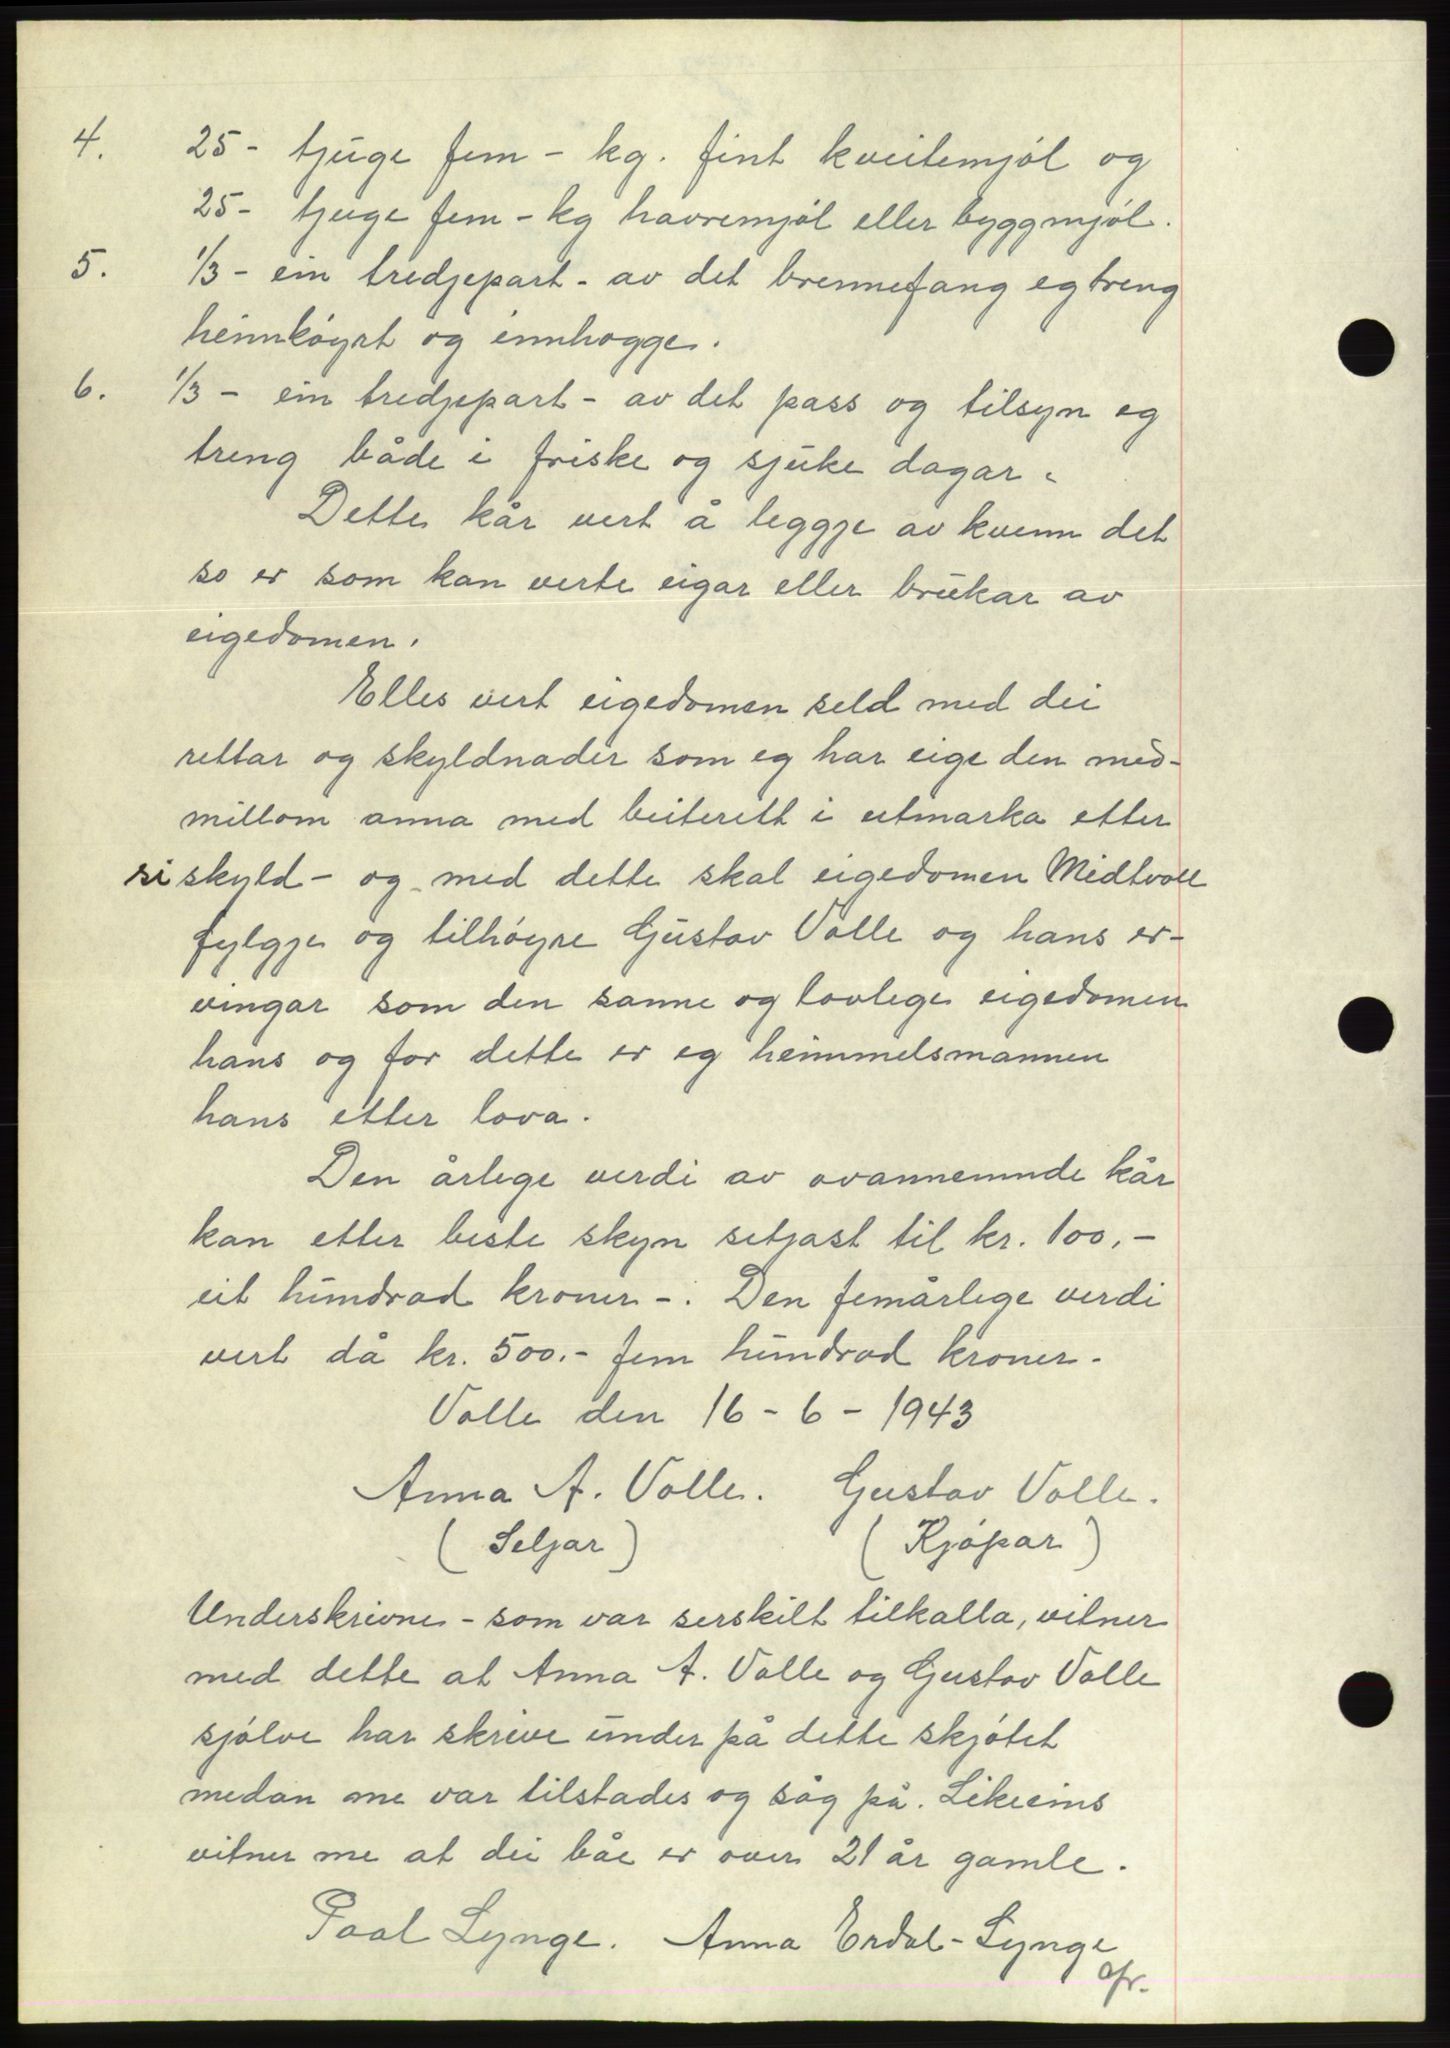 4. 25 - tjuge fem - kg. fint kveitemjøl og
25 - tjuge fem - kg havremjøl eller byggmjøl.
5. 1/3 - ein tredjepart - av det brennefang eg treng
heimkøyrt og innhogge.
6. 1/3 - ein tredjepart - av det pass og tilsyn eg
treng både i friske og sjuke dagar.
Dette kår vert å leggje av kvenn det
so er som kan verte eigar eller brukar av
eigedomen.
Elles vert eigedomen seld med dei
rettar og skyldnader som eg har eige den med-
millom anna med beiterett i utmarka etter
si skyld - og med dette skal eigedomen Midtvoll
fylgje og tilhøyre Gustav Volle og hans er-
vingar som den sanne og lovlege eigedomen
hans og for dette er eg heimmelsmannen
hans etter lova.
Den årlege verdi av ovannemnde kår
kan etter beste skyn setjast til kr. 100,-
eit hundrad kroner -. Den femårlege verdi
vert då kr. 500.- fem hundrad kroner.
Volle den 16 - 6 - 1943
Anna A. Volle. Gustav Volle.
( Seljar ) ( Kjøpar )
Underskrivne - som var serskilt tilkalla, vitner
med dette at Anna A. Volle og Gustav Volle
sjølve har skrive under på dette skjøtet
medan me var tilstades og såg på. Likeeins
vitner me at dei båe er over 21 år gamle.
Paal Lynge. Anna Erdal-Lynge